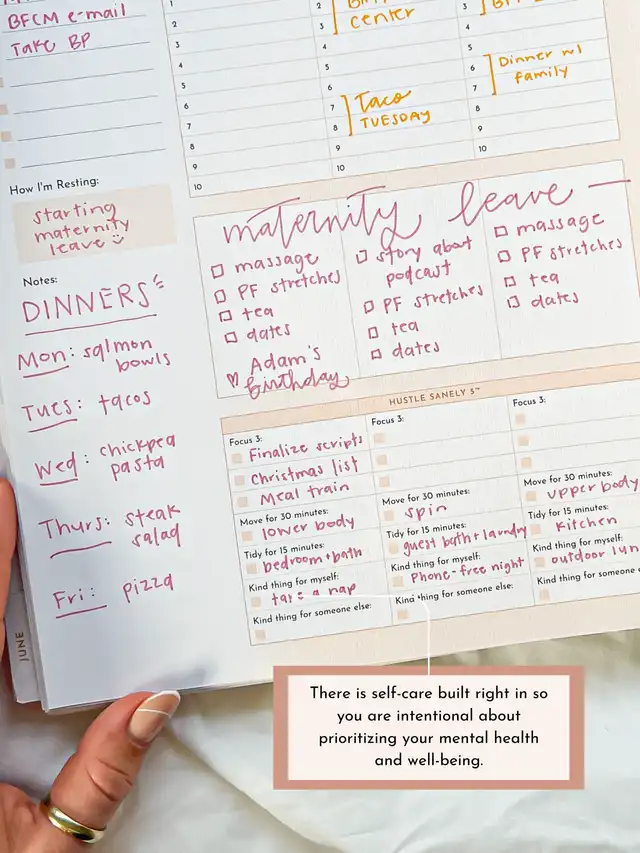 BFCM e-mail
Take BP
How I'm Resting:
starting
maternity
leave
Notes:
DINNERS
Mon: salmon
bowls
Tues: tacos
Wed: chickpea
pasta
Thurs: steak
salad
Fri: pizza
JUNE
1
2
3
4
5
6
7
8
9
10
2
3
center
4
5
6
7
8
9
10
Taco
TUESDAY
3
4
5
6
7
8
9
10
Dinner w/
family
maternity leave
massage
PF stretches
tea
dates
Adam's
birthday
story about
podcast
PF stretches
tea
dates
massage
PF stretches
tea
dates
HUSTLE SANELY 5™
Focus 3:
Finalize scripts
Christmas list
Meal train
Move for 30 minutes:
lower body
Tidy for 15 minutes:
bedroom + bath
Kind thing for myself:
a nap
Kind thing for someone else:
Focus 3:
Move for 30 minutes:
spin
Tidy for 15 minutes:
guest bath + laundry
Kind thing for myself:
Phone-free night
Kind thing for someone else:
Focus 3:
Move for 30 minutes:
upper body
Tidy for 15 minutes:
Kitchen
Kind thing for myself:
outdoor
Kind thing for someone
There is self-care built right in so
you are intentional about
prioritizing your mental health
and well-being.